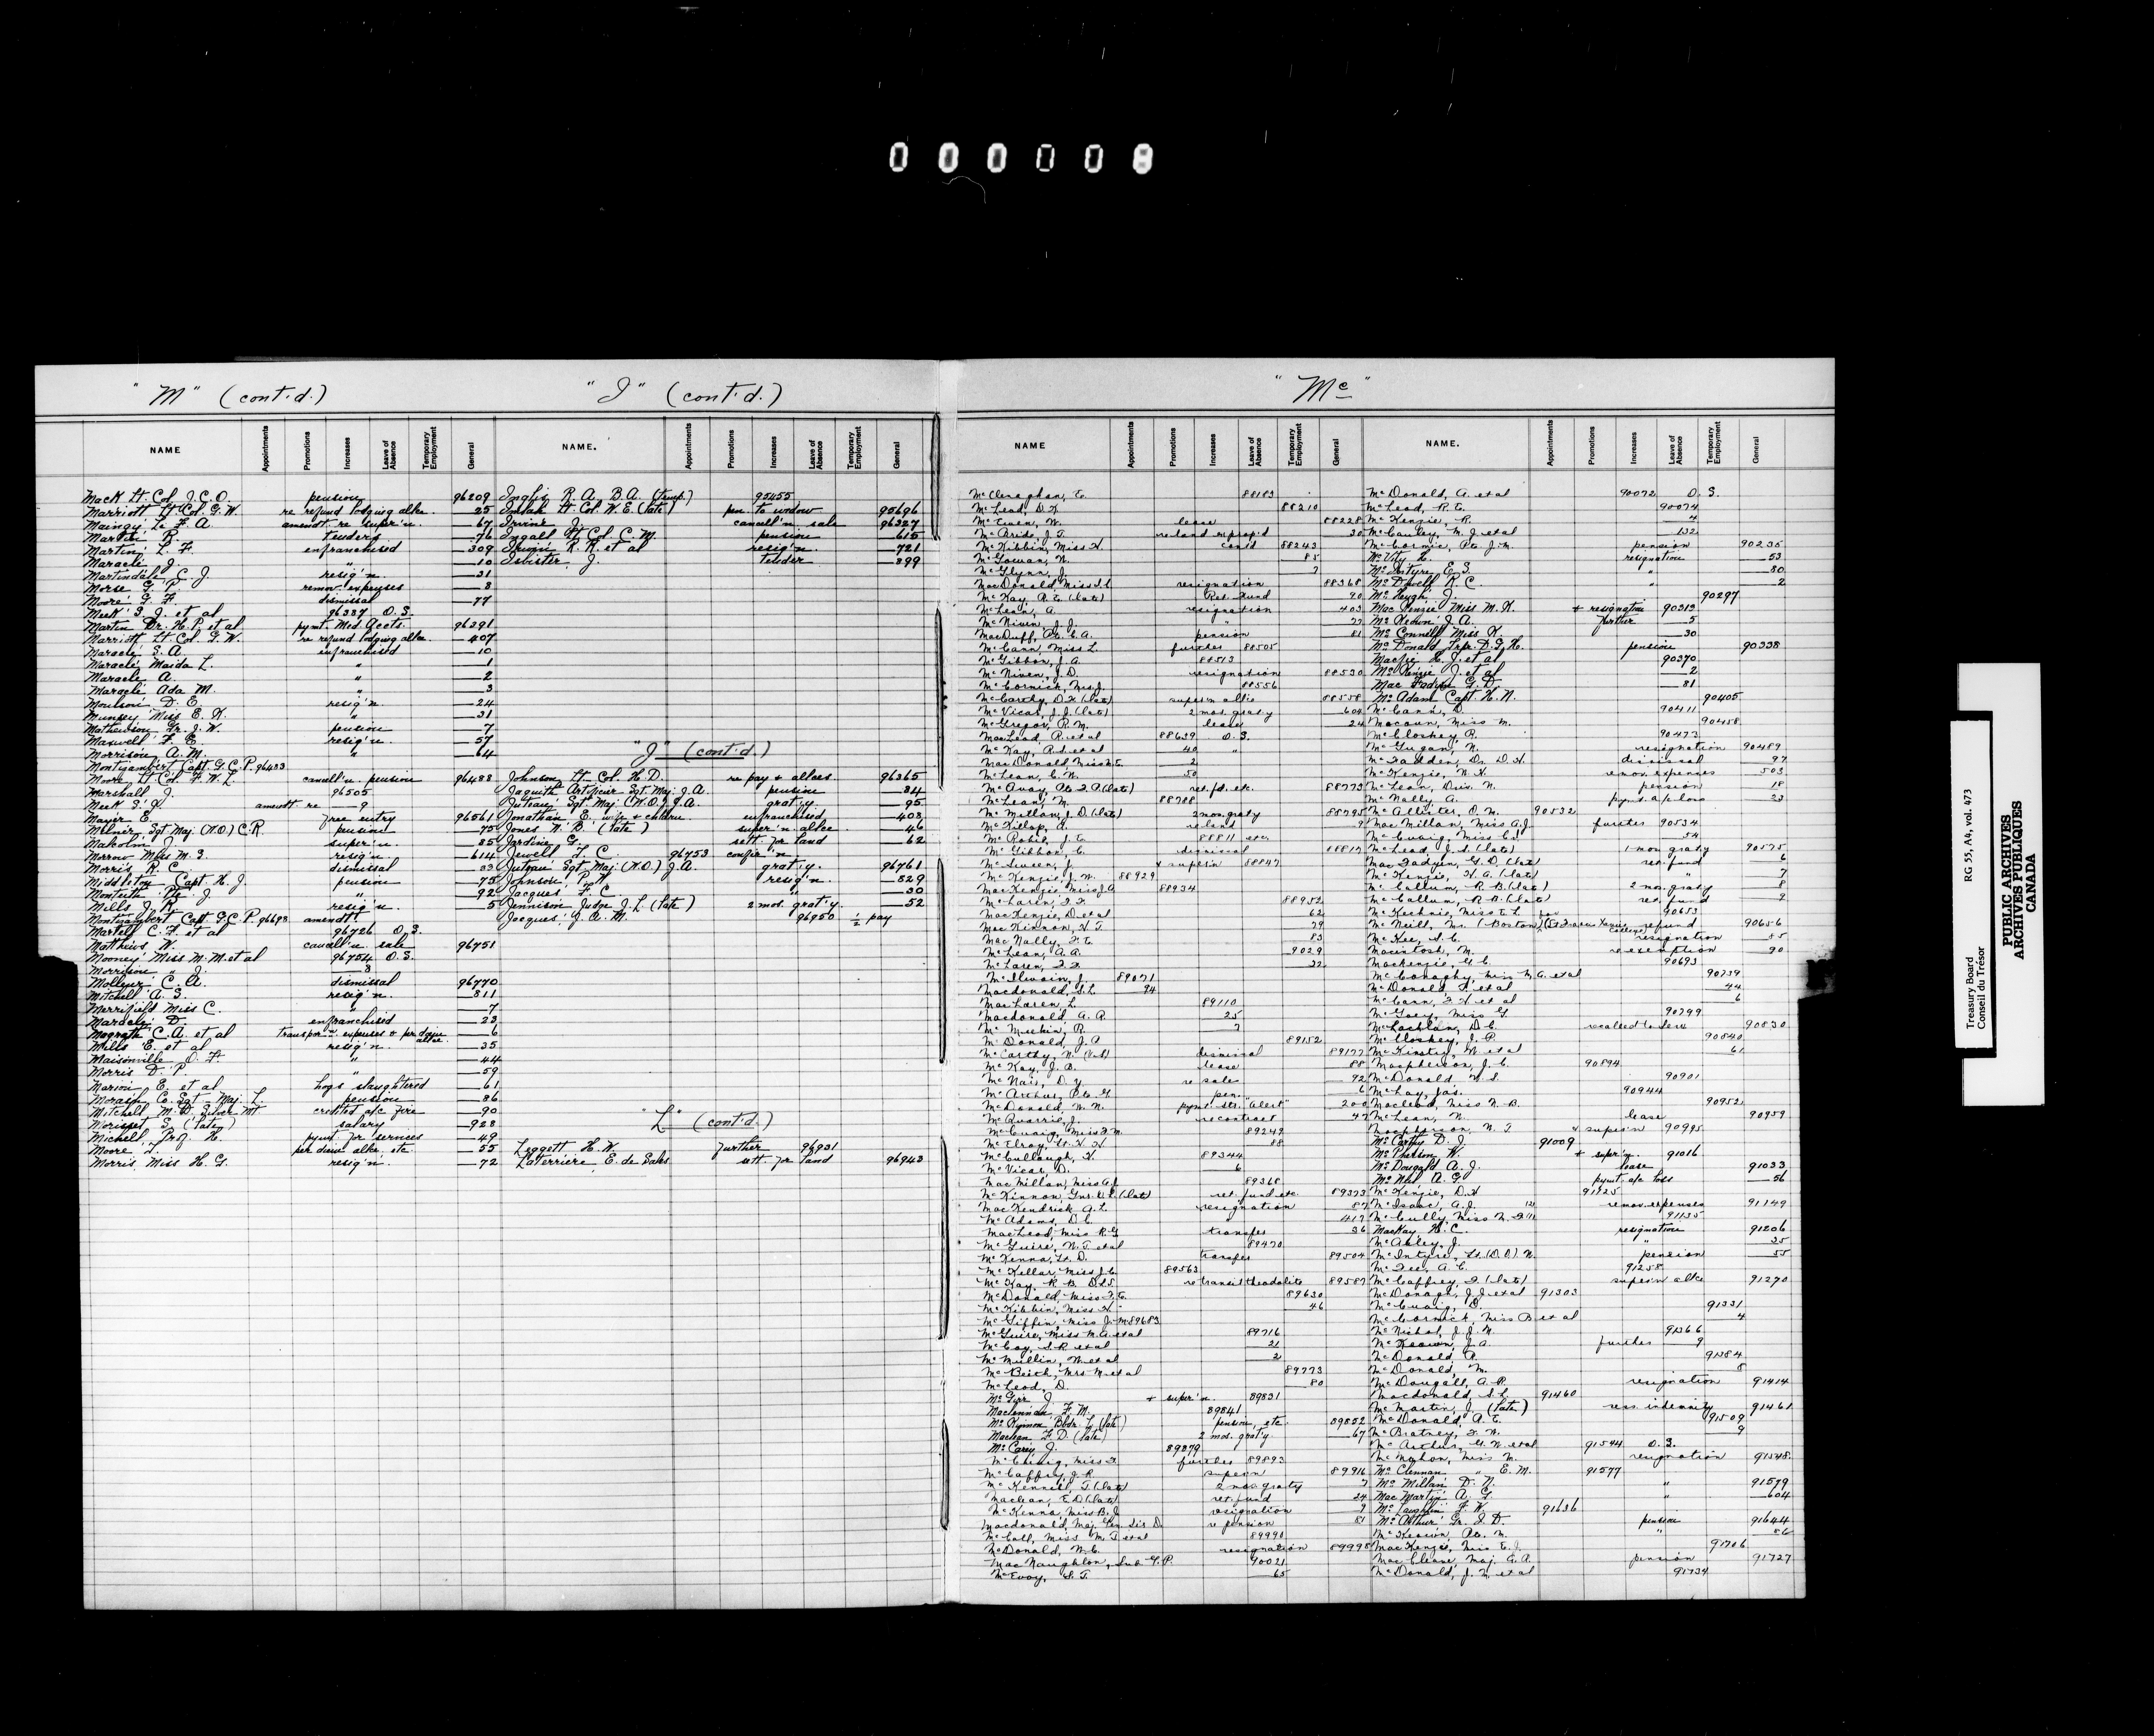 000008
"M" (cont'd.)
NAME Appointments Promotions Increases Leave of Absence Temporary Employment General
Mack Lt. Col. J.C.O. pension 96209
Marriott Lt Col. G.W. re refund lodging allce. 25
Maingy Le F. A. amendt. re super'n. 67
Martin R. tenders 76
Martin L. F. enfranchised 309
Maracle J. " 10
Martindale C. J. resig'n. 31
Morse G. P. remov. expenses 8
Moore G. F. dismissal 77
Meek S. J. et al 96387 O.S.
Martin Dr. H. P. et al pymt. Med. accts. 96391
Marriott Lt. Col. G. W. re refund lodging allce. 407
Maracle S. A. enfranchised 10
Maracle Maida L. " 1
Maracle A. " 2
Maracle Ada M. " 3
Moulson D. E. resig'n. 24
Munsey Miss E. K. " 31
Mathewson Gr. J. W. pension 7
Maxwell F. E. resig'n. 57
Morrison A. M. " 64
Montizambert Capt. G.C.P. 96483
Moore Lt. Col. F. W. L. cancell'n. pension 96488
Marshall J. 96505
Meek S. J. amendt. re 9
Mayer E. free entry 96561
Milner Sgt Maj. (W.O.) C.R. pension 75
Malcolm J. super'n. 85
Morrow Miss M. S. resig'n. 614
Morris R. C. dismissal 33
Middleton Capt. H. J. pension 75
Monteith Pte. J. " 92
Mills J. R. resig'n. 5
Montizambert Capt G.C.P. 96698 amendt.
Martell C. F. et al 96726 O.S.
Matthews W. cancell'n. sale 96751
Mooney Miss M. M. et al 96754 O.S.
Morrison " J. 8
Molleur C. A. dismissal 96770
Mitchell A. S. resig'n. 811
Merrifield Miss C. " 7
Maracle D. enfranchised 23
Magrath C. A. et al transpor'n expenses & per diem allce. 6
Mills E. et al resig'n. 35
Maisonville O. F. " 44
Morris D. P. " 59
Marion E. et al hogs slaughtered 61
Morash C. Sgt-Maj. L. pension 86
Mitchell M. D. Silver Mt credited a/c fire 90
Morisset S. (late) salary 928
Michell, Prof. H. pymt. for services 49
Moore T. per diem allce. etc. 55
Morris, Miss H. G. resig'n. 72
"I" (cont'd.)
NAME. Appointments Promotions Increases Leave of Absence Temporary Employment General
Inglis R. A. B. A. (temp.) 95455
Imlah Lt Col. W. E. (late) pen. to widow 95696
Irvine J. cancell'n. sale 96327
Ingall Lt Col C. M. pension 615
Irwin R. R. et al resig'n. 721
Isbister J. tender 899
"J" (cont'd.)
Johnson Lt. Col. H. D. re pay & allces. 96365
Jaquith Art'ficer Sgt. Maj. J. A. pension 84
Jutrau Sgt Maj. (W.O.) J. A. grat'y. 95
Jonathan E. wife & childrn. enfranchised 408
Jones N. B. (late) super'n allce. 46
Jardine G. sett. for land 62
Jewell L. C. 96753 confir'n.
Jutrau Sgt Maj. (W.O.) J. A. grat'y. 96761
Johnson P. W. resig'n. 829
Jacques F. C. " 30
Jennison Judge J. L. (late) 2 mos. grat'y. 52
Jacques J. A. M. 96950 ½ pay
"L" (cont'd.)
Leggett H. W. further 96931
Laterriere E. de Sales sett. for land 96943
"Mc"
NAME Appointments Promotions Increases Leave of Absence Temporary Employment General
McClenaghan, E. 88183
McLeod, D. K. 88210
McEwen, W. lease 88228
McBride, J. T. re land exprop'd 30
McKibbin, Miss H. cont'd 88243
McGowan, N. 85
McGlynn, J. 7
MacDonald, Miss I. L. resignation 88368
McKay, R. E. (late) Ret. Fund 90
McLean, A. resignation 403
McNiven, J. J. " 77
MacDuff, Pte. C. A. pension 81
McCann, Miss L. further 88505
McGibbon, J. A. 88513
McNiven, J. D. resignation 88530
McCormick, Mrs. J. 88556
McCarthy, D. F. (late) super'n allce 88558
McVicar, J. J. (late) 2 mos. graty 604
McGregor, R. M. lease 24
MacLeod, R. et al 88639 O.S.
McKay, R. S. et al 40 "
MacDonald, Miss M. E. 2
McLean, C. N. 50
McQuay, Pte F. A. (late) ret. fd. etc. 88773
McLean, M. 88788
McMillan, J. D. (late) 2 mos. graty 88795
McKillop, A. re land 9
McRobie, J. E. 88811 etc.
McGibbon, C. dismissal 88817
McKenzie, J. W. 88929
MacKenzie, Miss J. A. 88934
McLaren, F. F. 88952
MacKenzie, D. et al 62
MacKinnon, H. T. 79
MacNally, F. E. 83
McLean, A. A. 9029
McLaren, F. F. 32
McIlwain, J. 89071
Macdonald, S. L. 94
MacLaren, L. 89110
Macdonald, A. R. 25
McMeekin, R. 7
McDonald, J. A. 89152
McCarthy, N. dismissal 89177
McKay, J. B. lease 88
McNair, D. Y. re sale 92
McArthur, Pte. G. pen. 6
McDonald, W. N. pymt. str. "Alert" 200
McQuarrie, J. re contract 47
McCuaig, Miss F. M. 89249
McElroy, Lt. H. H. 88
McCullough, H. 89344
McVicar, D. 6
MacMillan, Miss A. J. 89368
McKinnon, Gnr. A. L. (late) ret. fund etc. 89373
MacKendrick, A. L. resignation 87
McAdams, D. C. " 417
MacLeod, Miss R. G. transfer 36
McGuire, W. T. et al 89470
McKenna, Lt. D. transfer 89504
McKellar, Miss J. C. 89563
McKay, R. B. D.L.S. re transit theodolite 89587
McDonald, Miss F. E. 89630
McKibbin, Miss H. 46
McGiffin, Miss J. M. 89683
McGuire, Miss M. A. et al 89716
McCoy, S. R. et al 21
McMullin, W. et al 2
McBeith, Mrs. M. et al 89773
McLeod, D. 80
McGirr J. & super'n. 89831
Maclennan F. M. 89841
McKymon Bbdr. L. (late) pension, etc. 89852
Maclean F. D. (late) 2 mos. grat'y. 67
McCarey J. 89879
McCuaig, Miss F. further 89893
McCaffry, J. R. super'n 89916
McKennell, T. (late) 2 mos. graty 7
Maclean, F. D. (late) ret. fund 24
McKenna, Miss B. J. resignation 7
Macdonald, Maj. Gen. Sir D. re pension 81
McCall, Miss M. T. et al 89990
McDonald, W. C. resignation 89998
MacNaughton, Sub. G. P. 90021
McEvoy, S. T. 65
NAME. Appointments Promotions Increases Leave of Absence Temporary Employment General
McDonald, A. et al 90072 O.S.
McLeod, R. E. 90074
McKenzie, R. 4
McCauley, M. J. et al 132
McCormic, Pte. J. M. pension 90235
McVity L. resignation 53
McIntyre E. S. " 80
McDowell R. C. " 2
McHugh J. 90297
MacKenzie Miss M. K. & resignation 90313
McKeown J. A. further 5
McConnell Miss K. 30
McDonald Tpr. D. G. H. pension 90338
Macfie H. J. et al 90370
McKenzie J. et al 2
MacFadyen G. D. 81
McAdam Capt. H. N. 90405
McCann, D. 90411
Macoun, Miss M. 90458
McCloskey, R. 90473
McGugan, N. resignation 90489
McFadden, Dr. D. H. dismissal 97
McKenzie, N. H. remov. expenses 503
McLean, Div. N. pension 18
McNally, A. pymt. a/c loss 23
McAllister, O. M. 90532
MacMillan, Miss A. J. further 90534
McCuaig, Miss C. J. 54
McLeod, J. S. (late) 1 mon. graty 90575
MacFadyen, G. D. (late) ret. fund 6
McKenzie, H. A. (late) " 7
McCallum, R. B. (late) 2 mos. graty 8
McCallum, R. B. (late) ret. fund 9
McKechnie, Miss E. L. 90653
McNeill, Mr. (-Boston) (St Francis Xavier College) refund 90656
McKee, S. C. resignation 85
Macintosh, M. re exemption 90
Mackenzie, G. C. 90693
McConaghy, Miss M. A. et al 90739
McDonald, F. et al 44
McCann, F. H. et al 6
McGoey, Miss G. 90799
McLachlan, D. C. recalled to serv. 90830
McCloskey, J. P. 90840
McKinstry, W. et al 61
Macpherson, J. C. 90894
McDonald, W. S. 90901
McLay, Jas. 90944
Macleod, Miss N. B. 90952
McLean, N. lease 90959
Macpherson, N. T. & super'n 90995
McCarthy D. J. 91009
McPherson, W. & super'n. 91016
McDougald A. J. lease 91033
McNeil A. G. pymt. a/c loss 56
McKenzie, D. H. 91125
McIsaac, A. J. remov. expenses 91149
McCully, Miss M. F. 91135
MacKay H. C. resignation 91206
McAuley, J. " 35
McIntyre, Lt. (D.O.) N. pension 55
McFee, A. C. 91258
McCaffrey, F. (late) super'n allce 91290
McDonagh, J. J. et al 91303
McCuaig, D. 91331
McCormick, Miss B. et al 4
McNichol, J. J. N. 91366
McKeown, J. A. further 9
McDonald, A. 91384
McDonald, M. 8
McDougall, A. R. resignation 91414
Macdonald, S. L. 91460
McMartin, J. (late) sess. indemnity 91461
McDonald, A. E. 91509
McBratney, F. W. 9
McArthur, G. N. et al 91544 O.S.
McMahon, Miss M. resignation 91548
McClennan " E. M. 91577
McMillan D. N. " 91579
MacMartin A. G. " 604
McLaughlin F. W. 91636
McArthur Gr. J. D. pension 91644
McKeown, Pte. M. " 86
MacKenzie, Miss E. J. 91706
MacCleave, Maj. G. A. pension 91727
McDonald, J. N. et al 91734
Treasury Board RG 55, A4, vol. 473
Conseil du Trésor
PUBLIC ARCHIVES
ARCHIVES PUBLIQUES
CANADA